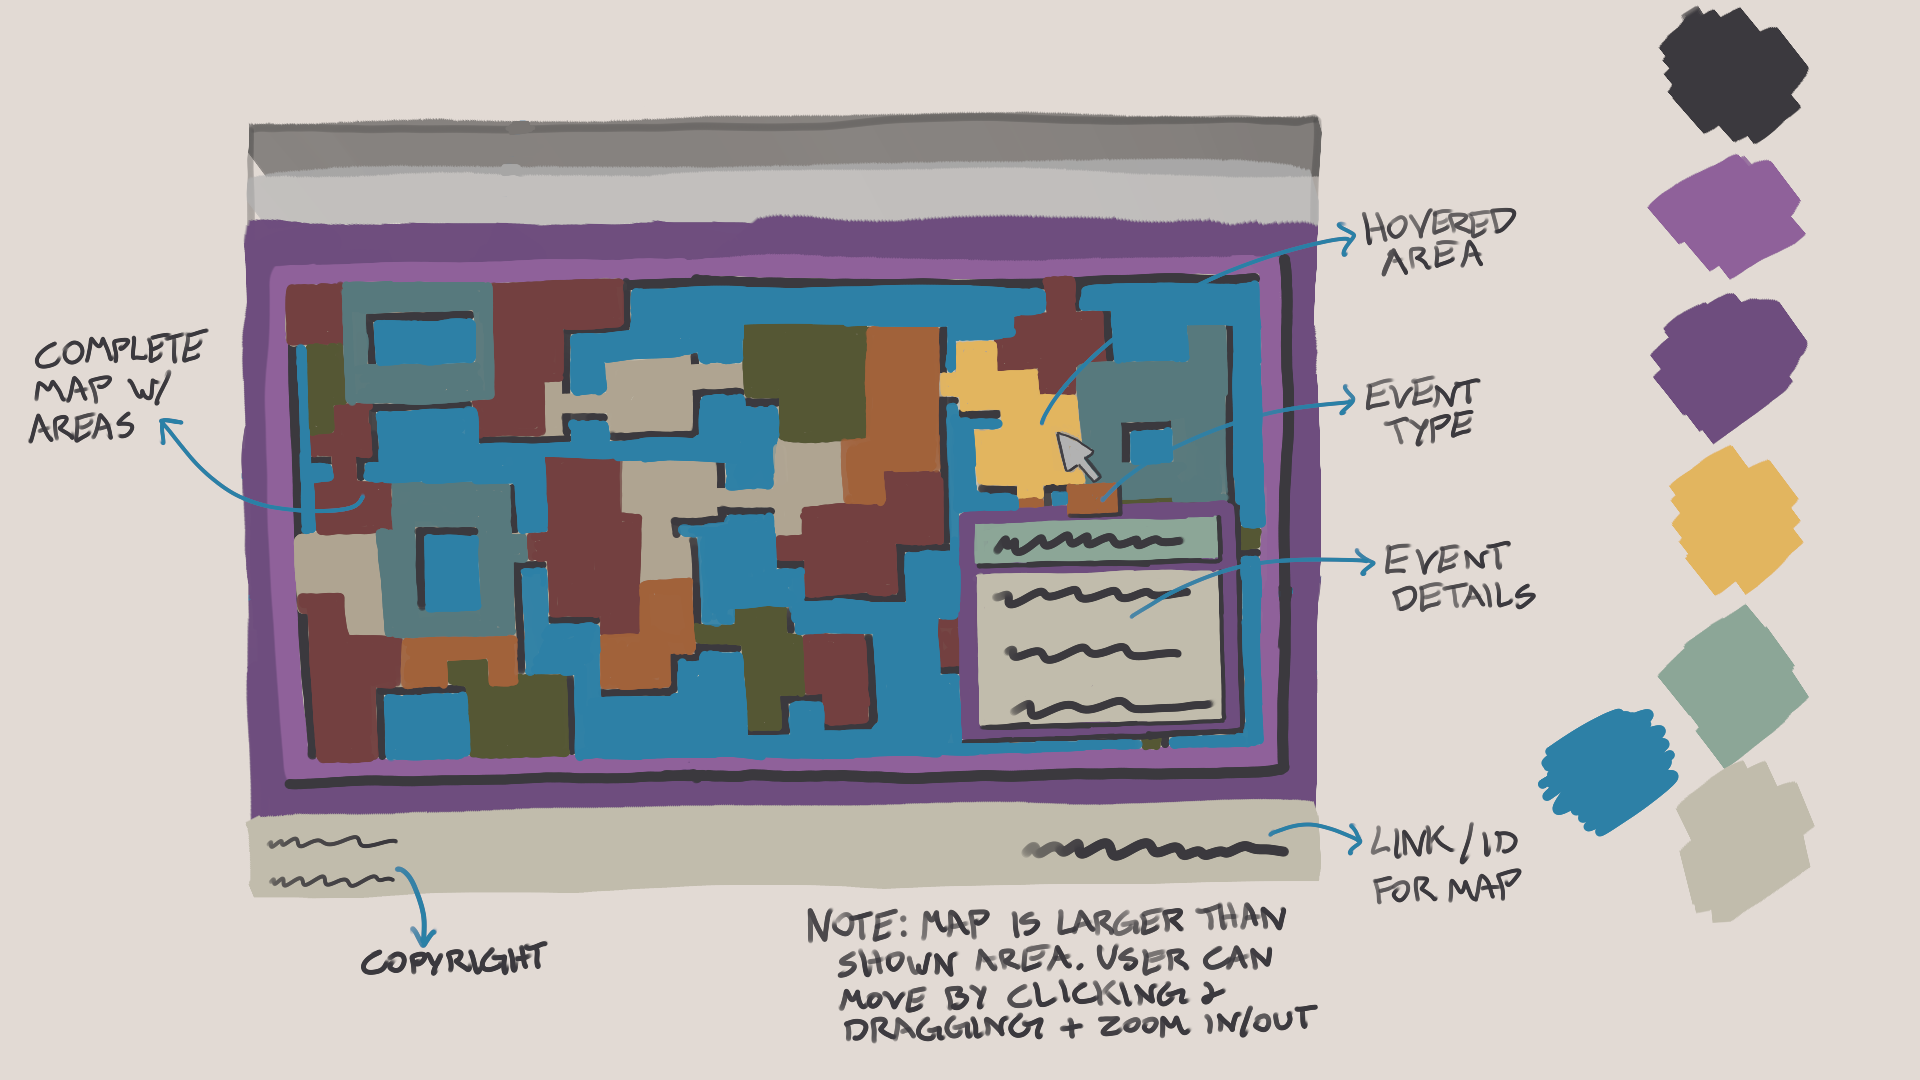 HOVERED
AREA
COMPLETE
MAP W/
AREAS
EVENT
TYPE
EVENT
DETAILS
LINK/ID
FOR MAP
COPYRIGHT
NOTE: MAP IS LARGER THAN
SHOWN AREA. USER CAN
MOVE BY CLICKING &
DRAGGING + ZOOM IN/OUT